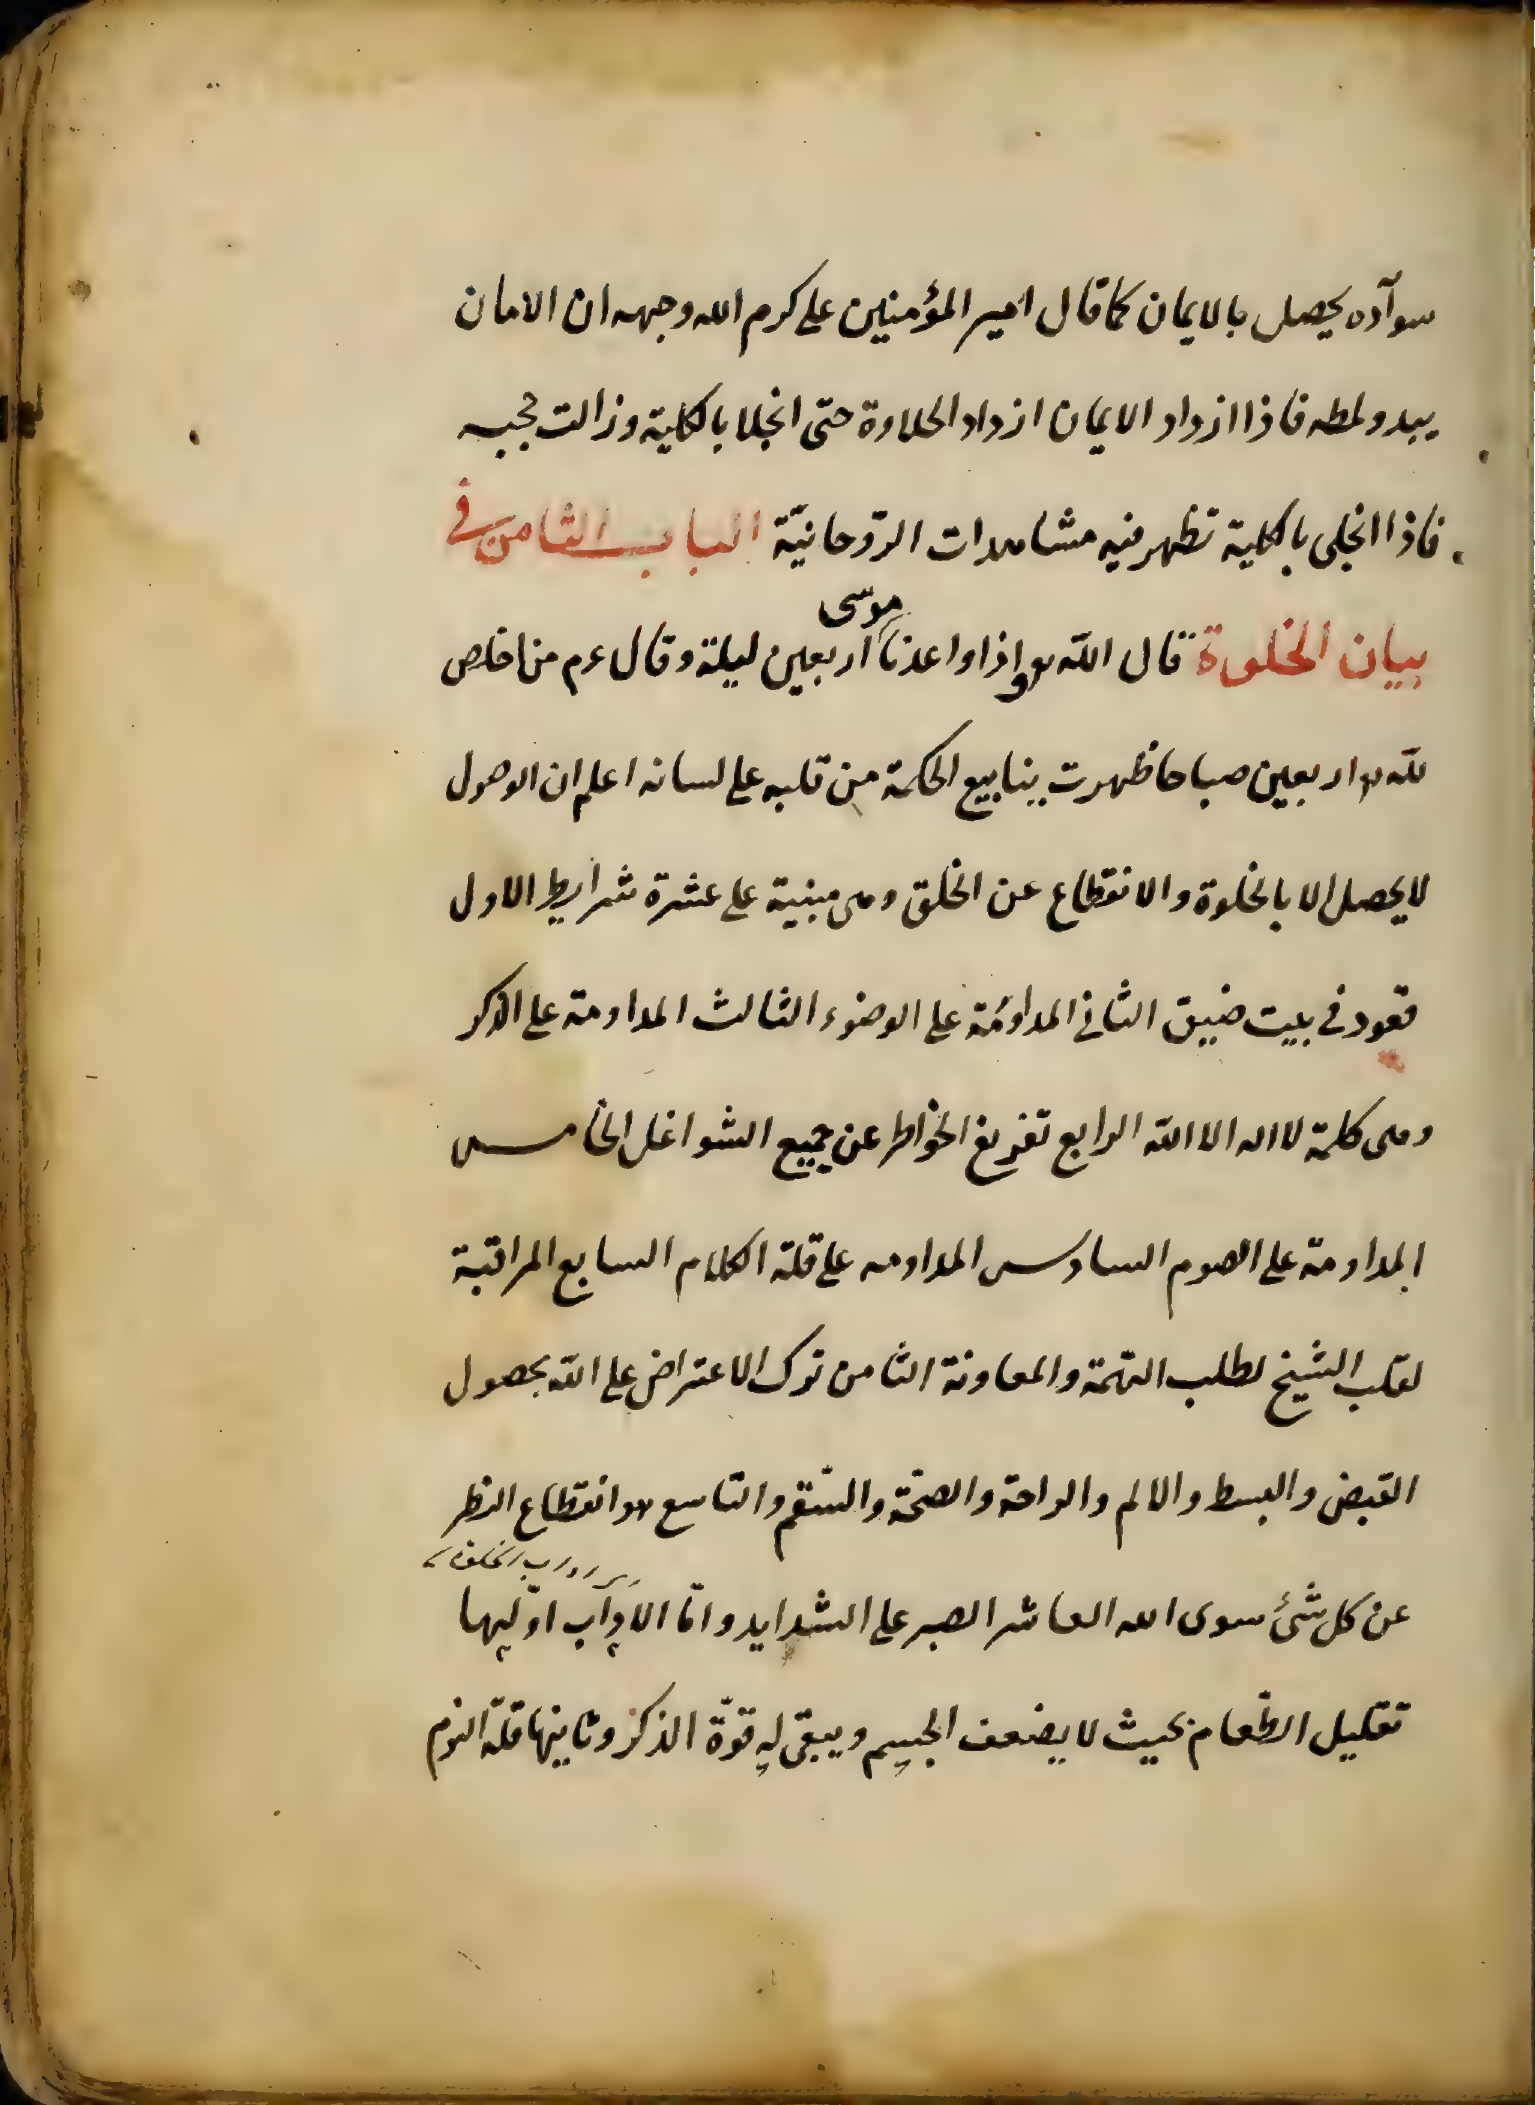 سوآده يحصل بالايمان كما قال امير المؤمنين على كرم الله وجهه ان الامان
يبدو لمظه فاذا ازداد الايمان ازداد الحلاوة حتى انجلا بالكلية وزالت حجبه
فاذا انجلى بالكلية تظهر فيه مشاهدات الرّوحانيّة الباب الثامن فى
بيان الخلوة قال الله تع واذا واعدنا موسى اربعين ليلة وقال عم من اخلص
لله تع اربعين صباحا ظهرت ينابيع الحكمة من قلبه على لسانه اعلم ان الوصول
لا يحصل الا بالخلوة والانقطاع عن الخلق وهى مبنية على عشرة شرايط الاول
قعود فى بيت ضيق الثانى المداومة على الوضوء الثالث المداومة على الذكر
وهى كلمة لا اله الا الله الرابع تفريغ الخواطر عن جميع الشواغل الخامس
المداومة على الصوم السادس المداومه على قلة الكلام السابع المراقبة
لقلب الشيخ لطلب الهمّة والمعاونة الثامن ترك الاعتراض على الله بحصول
القبض والبسط والالم والراحة والصحّة والسّقم والتاسع هو انقطاع النظر
اداب الخلوة
عن كل شئ سوى الله العاشر الصبر على الشدايد وامّا الاداب اوّليها
تقليل الطّعام بحيث لا يضعف الجسم ويبقى له قوّة الذكر وثانيها قلّة النوم